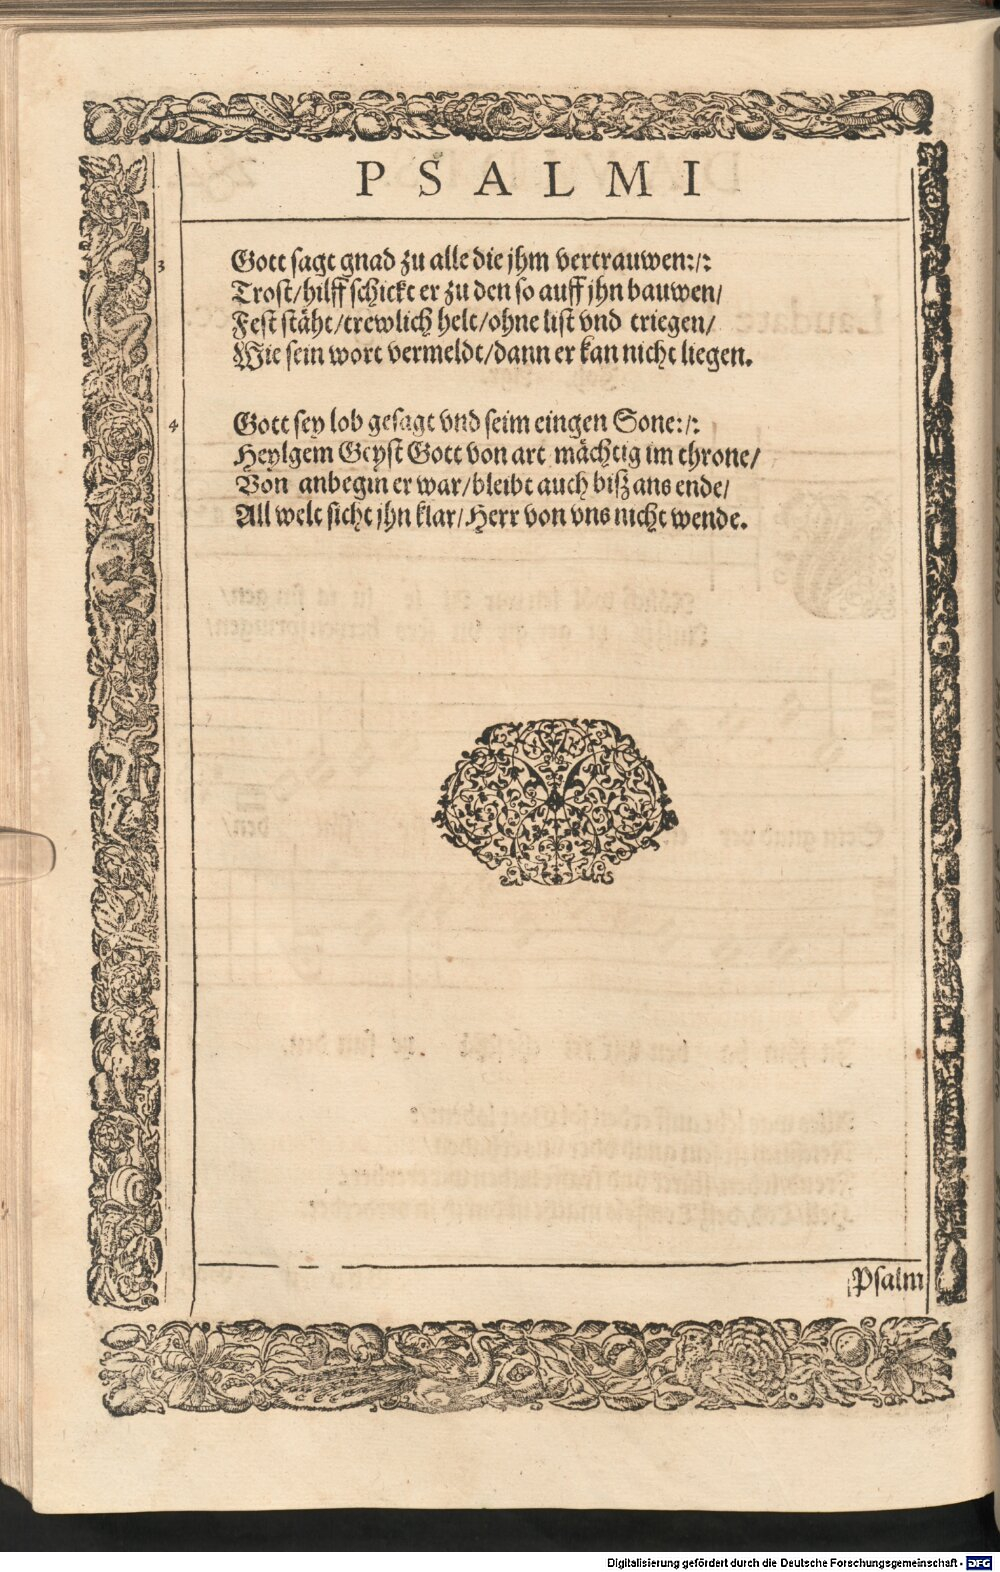 PSALMI
3 Gott sagt gnad zu alle die jhm vertrauwen:/:
Trost/hilff schickt er zu den so auff jhn bauwen/
Fest stäht/trewlich helt/ohne list vnd triegen/
Wie sein wort vermeldt/dann er kan nicht liegen.
4 Gott sey lob gesagt vnd seim eingen Sone:/:
Heylgem Geyst Gott von art mächtig im throne/
Von anbegin er war/bleibt auch biß ans ende/
All welt sicht jhn klar/Herr von vns nicht wende.
Psalm
Digitalisierung gefördert durch die Deutsche Forschungsgemeinschaft - DFG